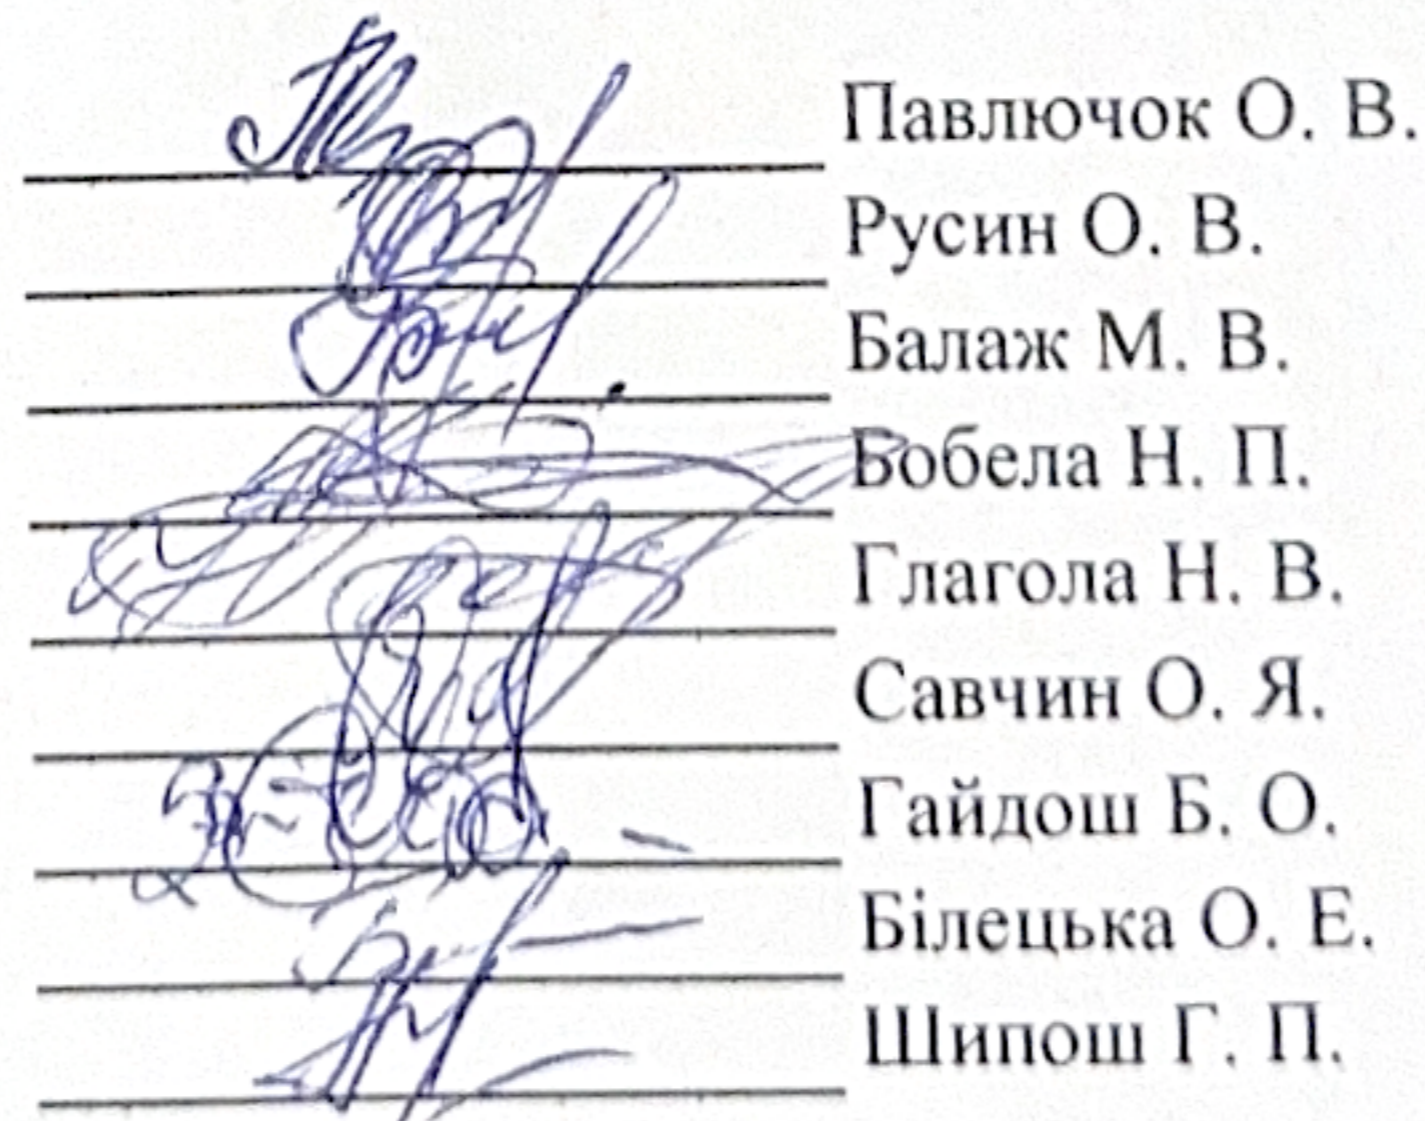 Павлючок О. В.
Русин О. В.
Балаж М. В.
Бобела Н. П.
Глагола Н. В.
Савчин О. Я.
Гайдош Б. О.
Білецька О. Е.
Шипош Г. П.